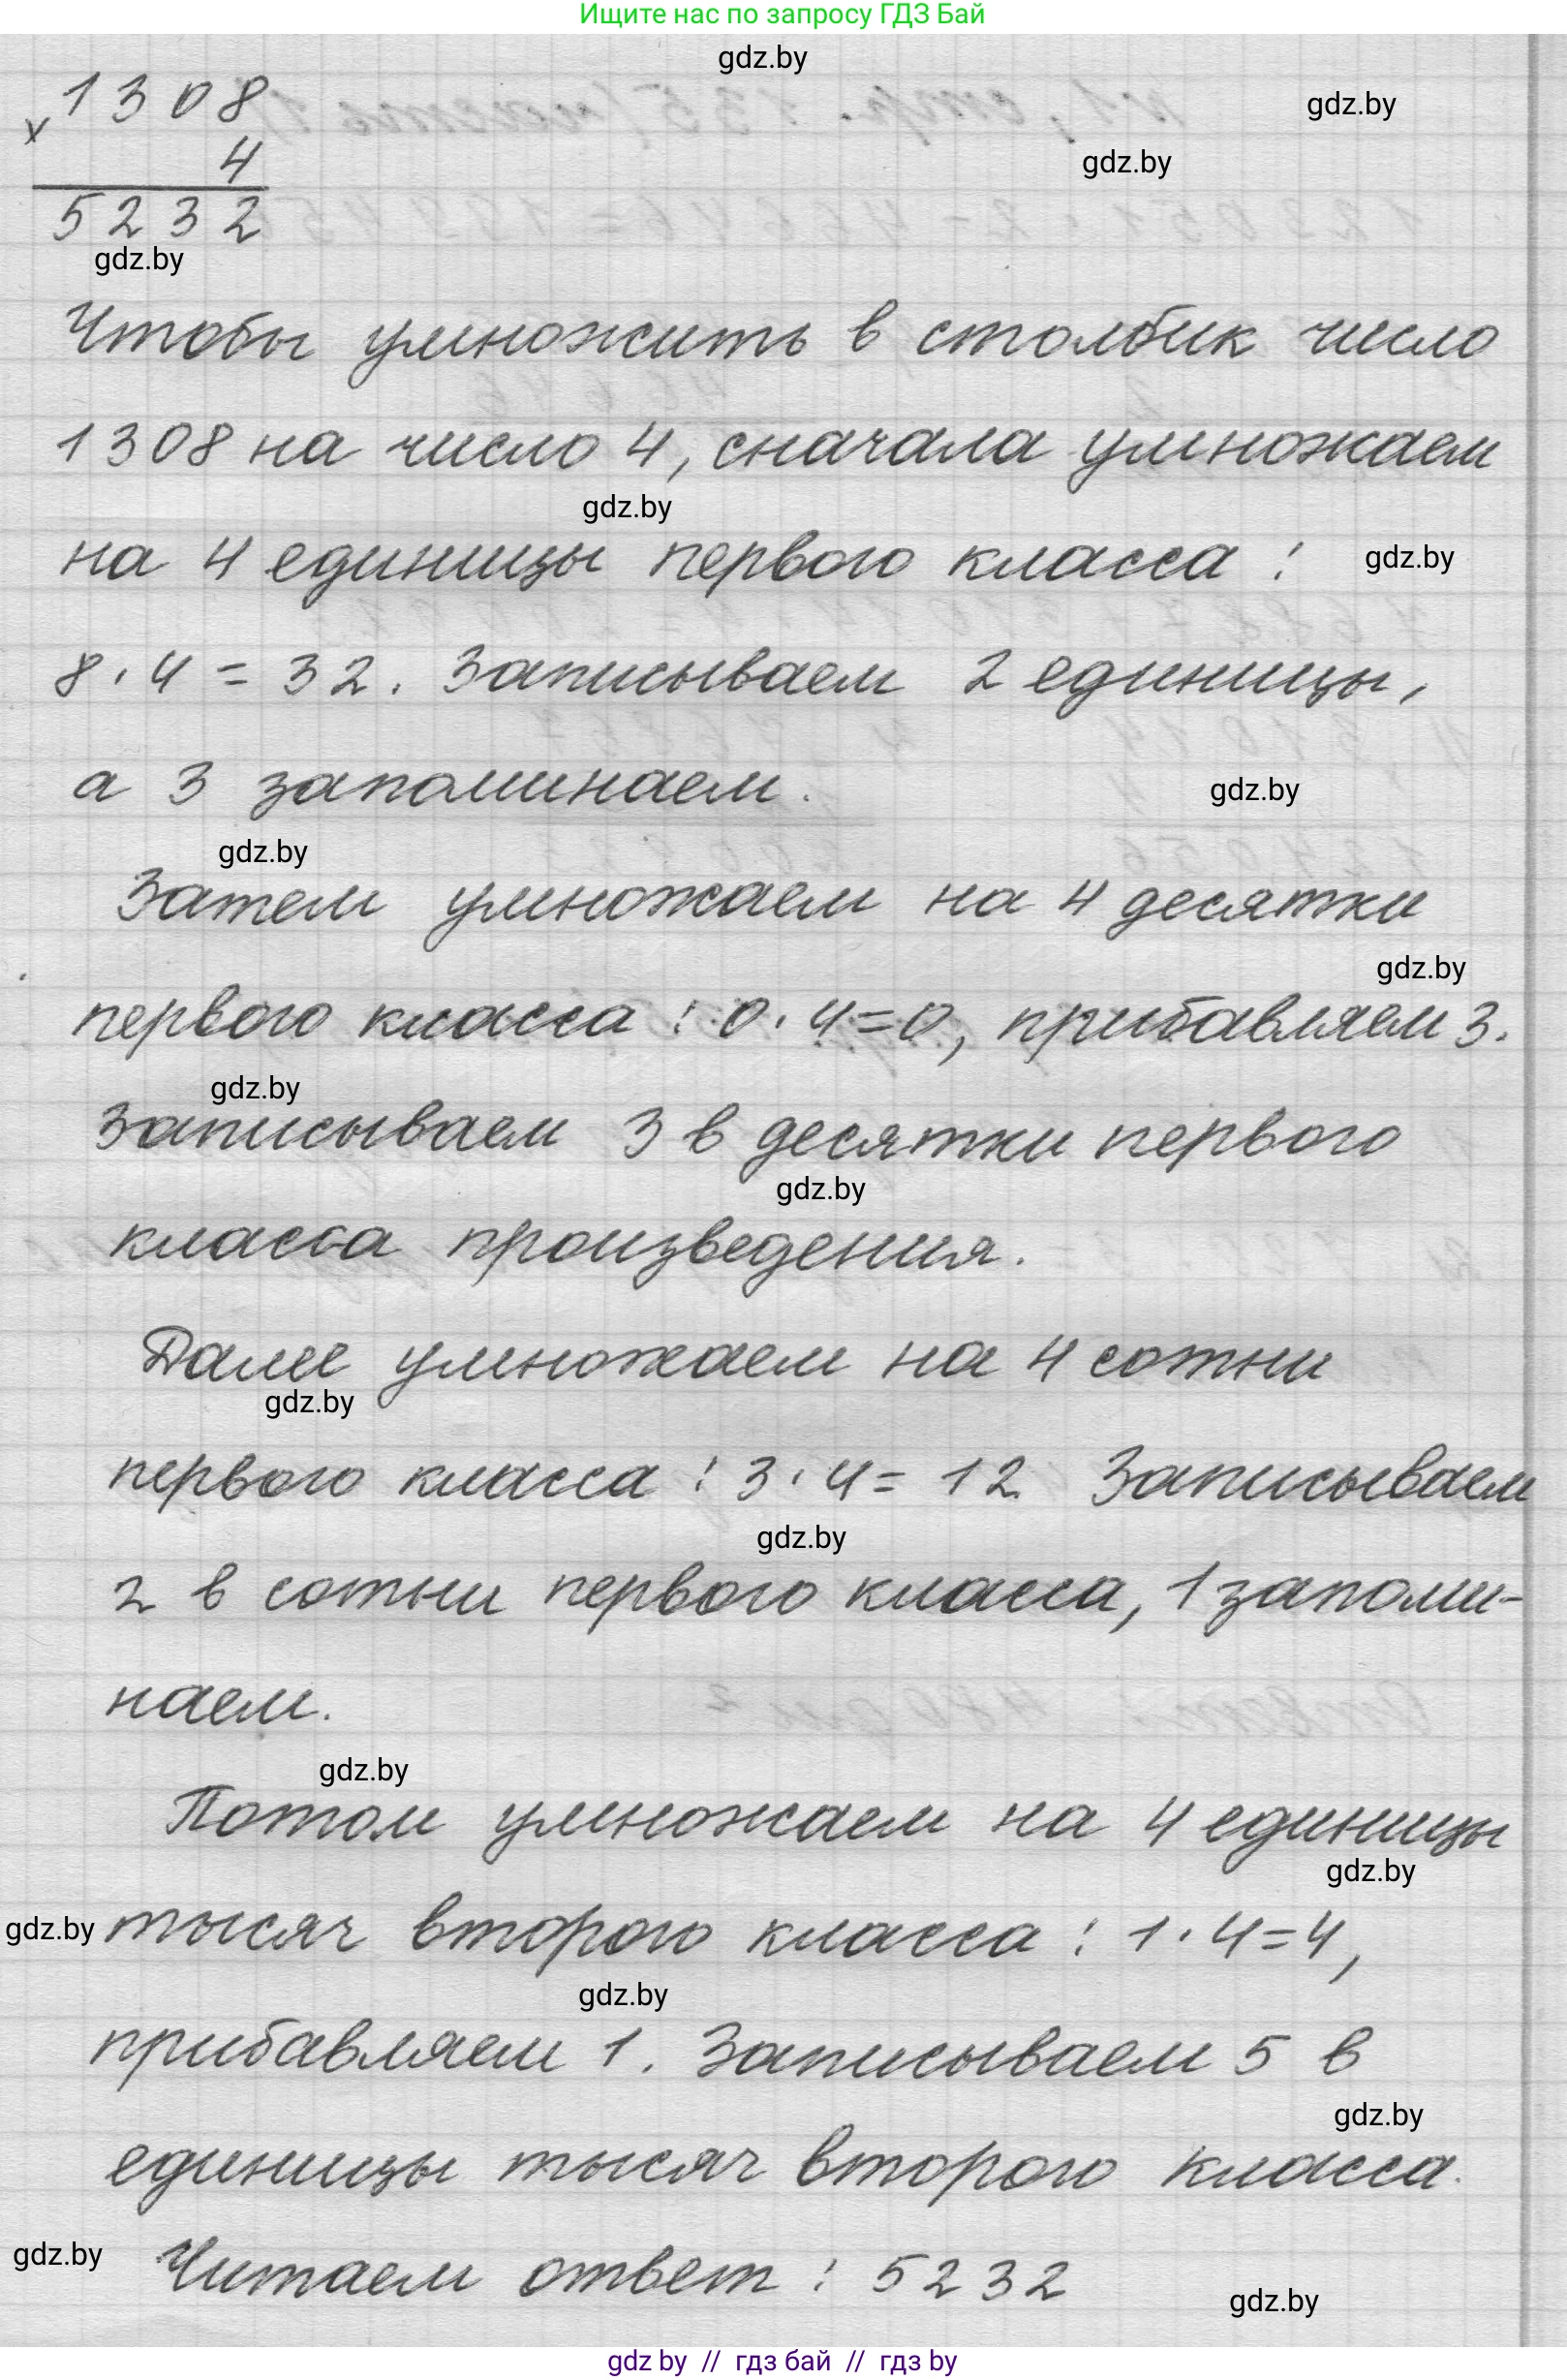 Ищите нас по запросу ГДЗ Бай
gdz.by
1308
gdz.by
х
4
gdz.by
5232
gdz.by
Чтобы умножить в столбик число
1308 на число 4, сначала умножаем
gdz.by
на 4 единицы первого класса:
gdz.by
8·4=32. Записываем 2 единицы,
а 3 запоминаем.
gdz.by
gdz.by
Затем умножаем на 4 десятки
gdz.by
первого класса: 0·4=0, прибавляем 3.
gdz.by
Записываем 3 в десятки первого
gdz.by
класса произведения.
Далее умножаем на 4 сотни
gdz.by
первого класса: 3·4=12. Записываем
gdz.by
2 в сотни первого класса, 1 запоми-
наем.
gdz.by
Потом умножаем на 4 единицы
gdz.by
gdz.by
тысяч второго класса: 1·4=4,
gdz.by
прибавляем 1. Записываем 5 в
gdz.by
единицы тысяч второго класса.
gdz.by
Читаем ответ: 5232
gdz.by
gdz by // гдз бай // гдз by